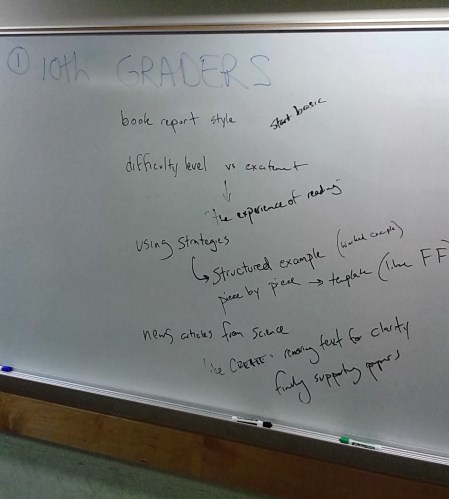 ① 10th GRADERS
book report style start basic
difficulty level vs excitement
↓
"the experience of reading"
using strategies
↳ Structured example (worked example)
piece by piece → template (like FF
news articles from science
like CREATE: removing text for clarity
finding supporting papers